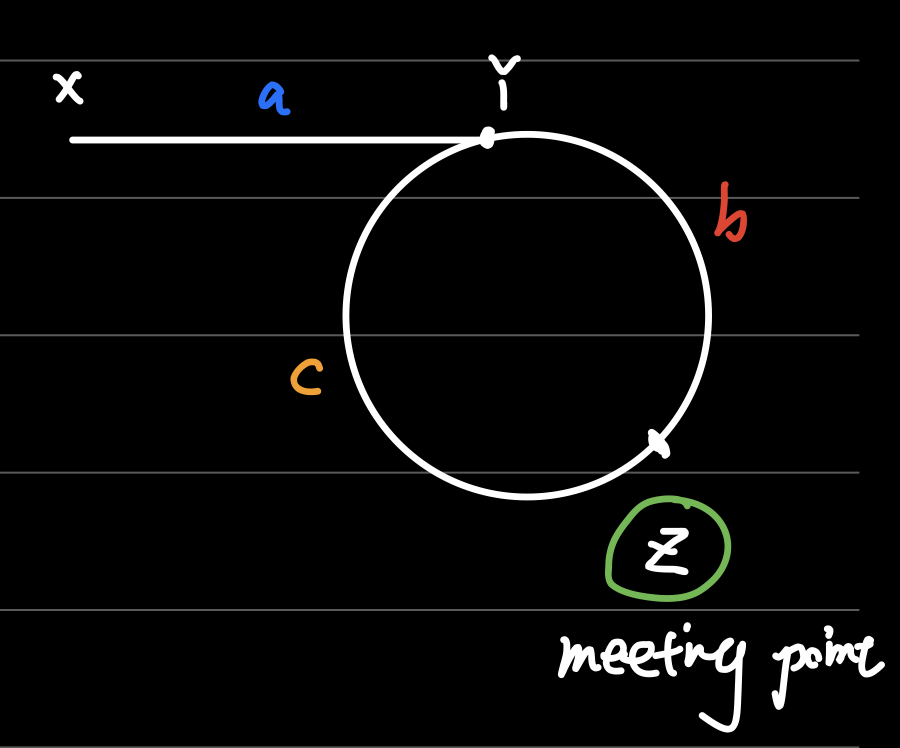 X
a
Y
b
c
Z
meeting point